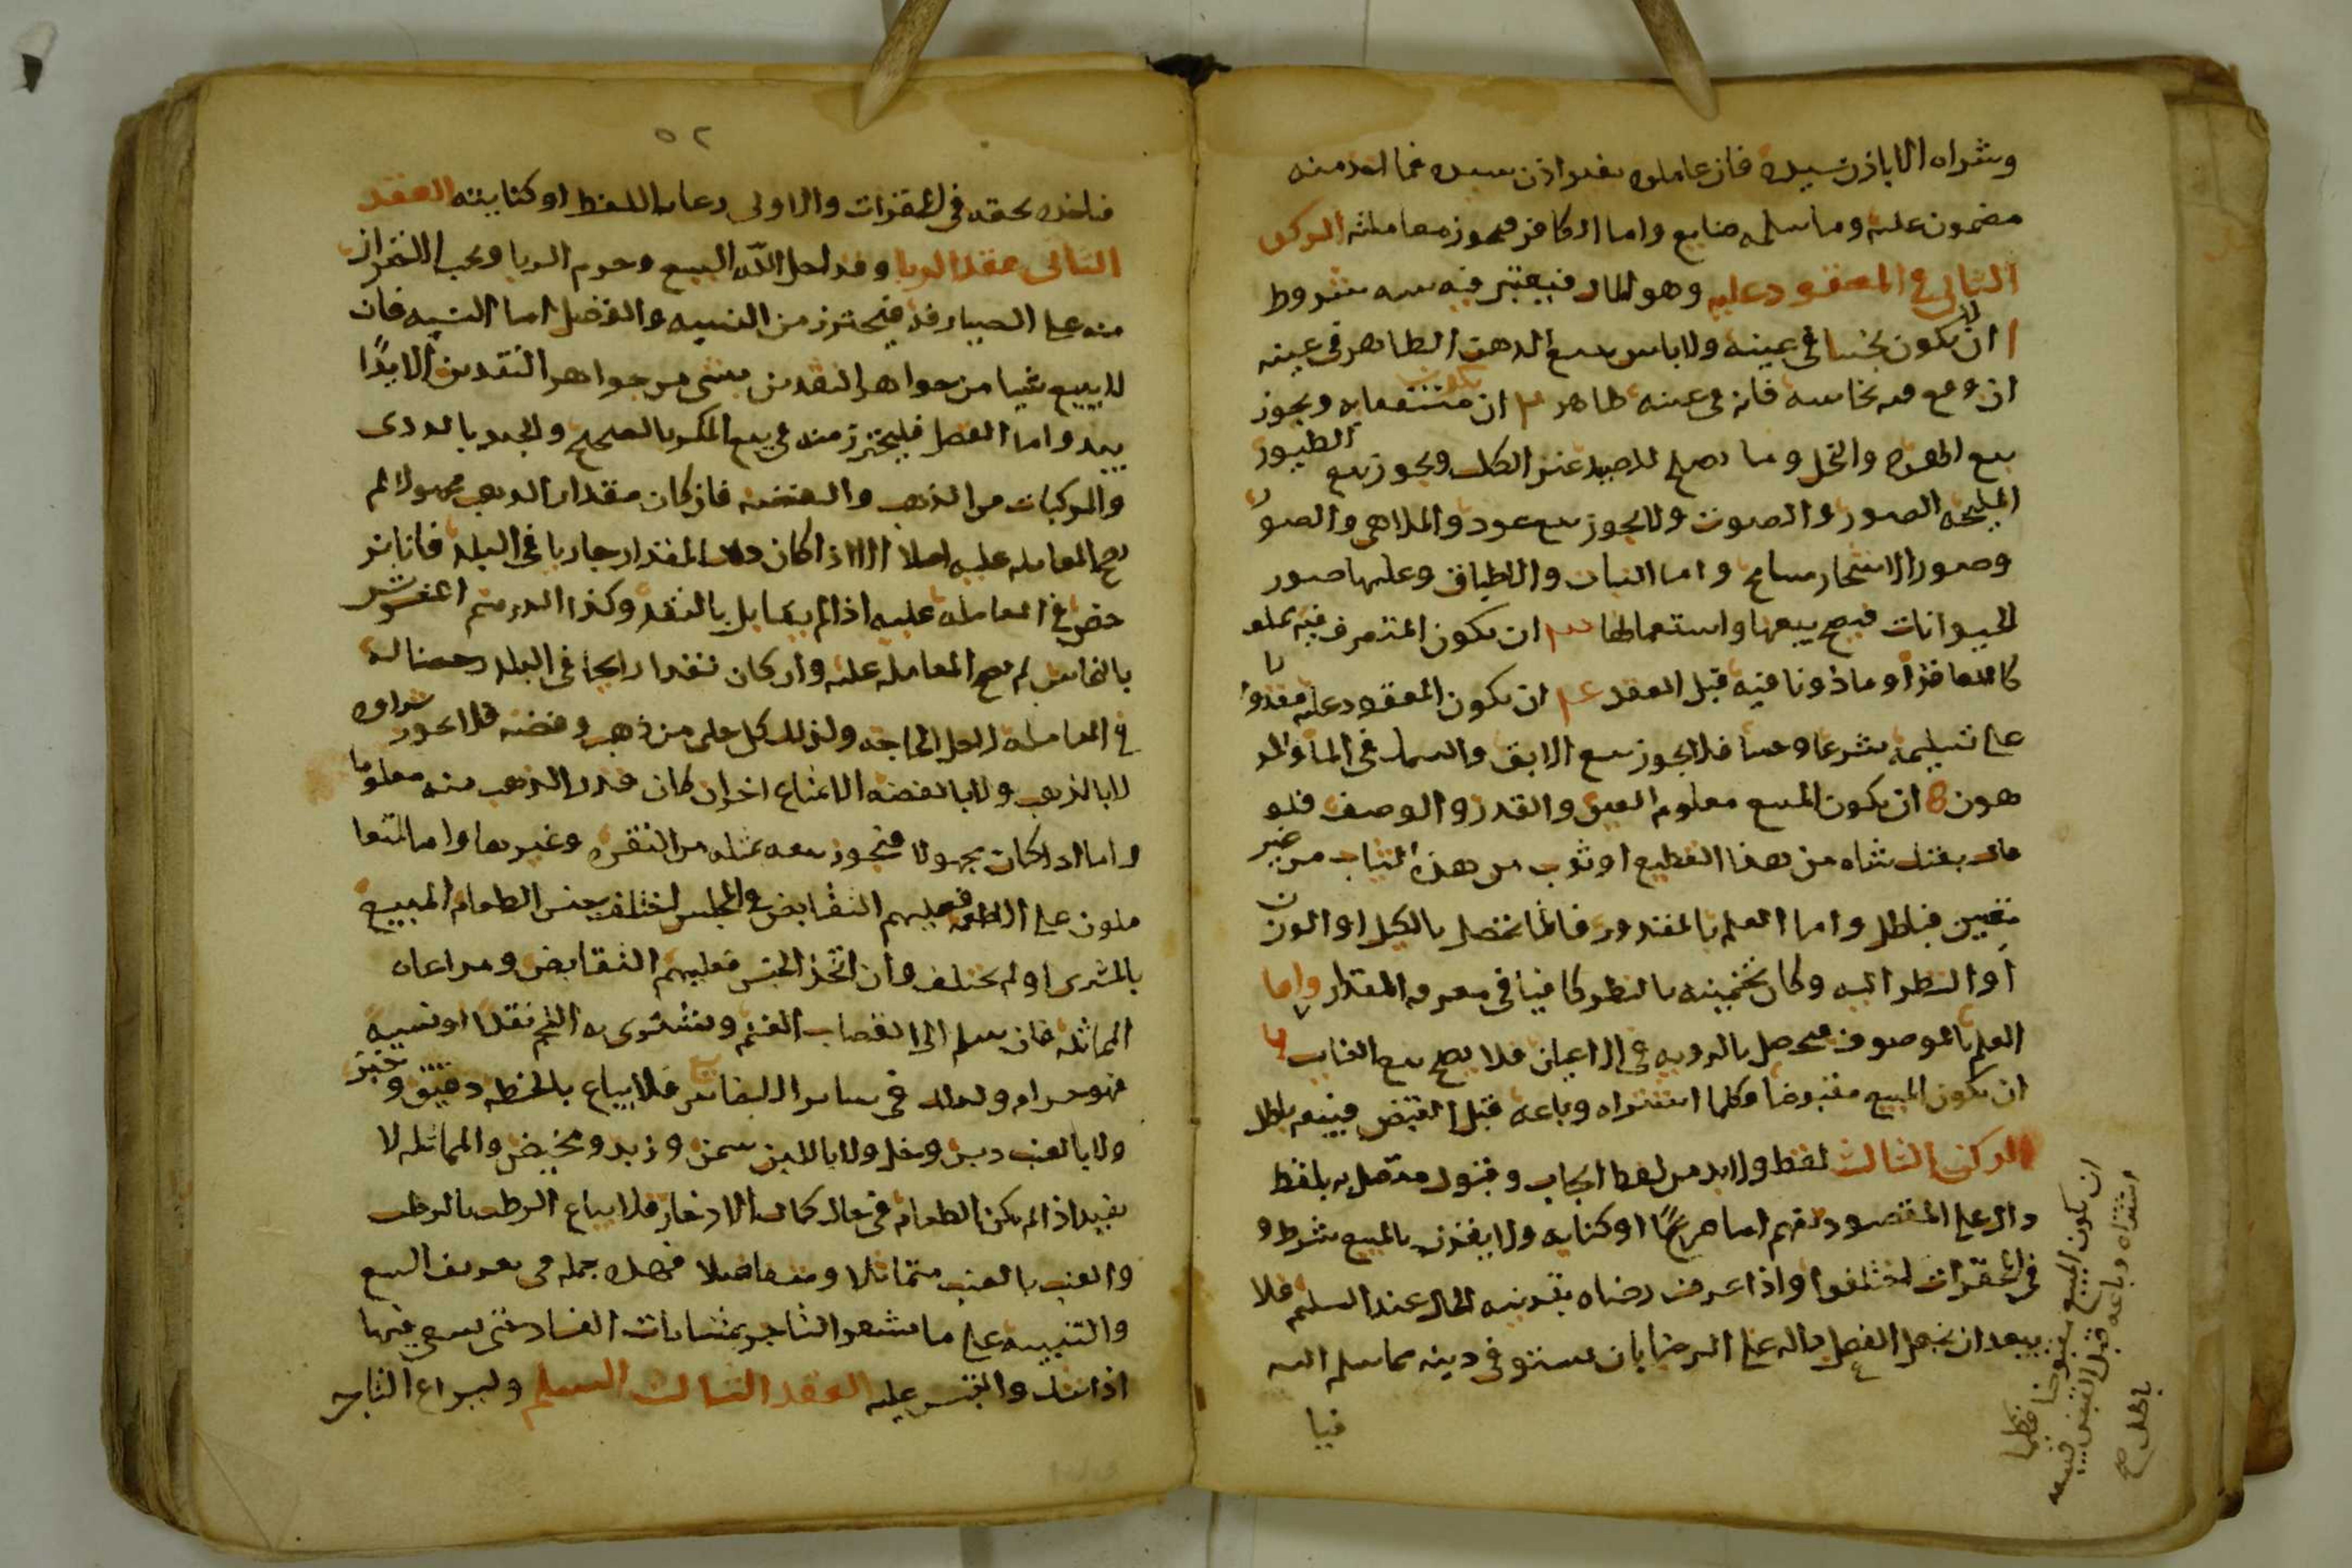 وشراه الا باذن سيده فان عامله بغير اذن سيده فما اخذ منه
مضمون عليه وما سلمه ضايع واما الكافر فيجوز معاملته الركن
الثاني في المعقود عليه وهو المال فيعتبر فيه سته شروط
ا ان لا يكون نجسا في عينه ولا باس ببيع الدهن الطاهر في عينه
ان وقع فيه نجاسه فانه في عينه طاهر ٢ ان يكون منتفعا به ويجوز
بيع الهره والنحل وما يصلح للصيد غير الكلب ويجوز بيع الطيور
المليحه الصور والصوت ولا يجوز بيع عود والملاهي والصور
وصور الاشجار مسامح واما الثياب والاطباق وعليها صور
الحيوانات فيصح بيعها واستعمالها ٣ ان يكون المتصرف فيه مملو
كا للعاقد او ماذونا فيه قبل العقد ٤ ان يكون المعقود عليه مقدورا
على تسليمه شرعا وحسا فلا يجوز بيع الابق والسمك في الماء والمر
هون 8 ان يكون المبيع معلوم العين والقدر والوصف فلو
قال بعتك شاه من هذا القطيع او ثوب من هذه الثياب من غير
تعيين فباطل واما العلم بالمقدور فانما تحصل بالكيل او الوزن
او النظر اليه وكان تخمينه بالنظر كافيا في معرفه المقدار واما
العلم بالموصوف فيحصل بالرويه في الاعيان فلا يصح بيع الغايب ٦
ان يكون المبيع مقبوضا وكلما اشتراه وباعه قبل القبض فبيعه باطل
الركن الثالث لفظ ولابد من لفظ ايجاب وقبول متصل به بلفظ
دال على المقصود تفهم اما صريحًا او كنايه ولا يقترن بالمبيع شرط و
في المحقرات اختلفوا واذا عرف رضاه بقرينه الحال عند السلم فلا
يبعد ان نجعل الفعل داله على الرضا بان يستوفي دينه مما سلم اليه
فيا
ان يكون المبيع مقبوضا فكلما
اشتراه وباعه قبل القبض فبيعه
باطل صح
٥٢
فياخذه بحقه في المحقرات والاولى رعايه اللفظ او كنايته العقد
الثاني عقد الربا وقد احل اللّه البيع وحرم الربا ويجب الاحتراز
منه على الصيارفه فيحترز من النسيه والفضل اما النسيه فان
لا يبيع شيا من جواهر النقدين بشي من جواهر النقدين الا يدًا
بيد واما الفضل فليحترز منه في بيع المكسر بالصحيح والجيد بالردى
والمركبات من الذهب والفضه فان كان مقدار الذهب مجهولا لم
يصح المعامله عليه اصلا الا اذا كان ذلك المقدار جاريا في البلد فانا نر
خص في المعامله عليه اذا لم يقابل بالنقد وكذا الدرهم المغشوش
بالنحاس لم يصح المعامله عليه وان كان نقدا رايجا في البلد رخصنا له
في المعامله لاجل الحاجه ولذلك كل حلي من ذهب وفضه فلا يجوز شراوه
لا بالذهب ولا بالفضه الا بمتاع اخر ان كان قدر الذهب منه معلوما
واما اذا كان مجهولا فيجوز بيعه بمثله من النقره وغيرها واما المتعا
ملون على الاطعمه فعليهم التقابض في المجلس اختلف جنس الطعام المبيع
بالمشرى او لم يختلف وان اتحد الجنس فعليهم التقابض ومراعاه
المماثله فان سلم الى القصاب الغنم ويشترى به اللحم نقدا او نسيه
فهو حرام وكذلك في ساير الاجناس فلا يباع بالحنطه دقيق وخبز
ولا بالعنب دبس وخل ولا باللبن سمن وزبد ومخيض والمماثله لا
يفيد اذا لم يكن الطعام في حال كمال الادخار فلا يباع الرطب بالرطب
والعنب بالعنب متماثلا ومتفاضلا فهذه جمله في تعريف البيع
والتنبيه على ما يشعر التاجر بمثارات الفساد حتى يسعى فيها
اذا شك والتبس عليه العقد الثالث السلم وليراع التاجر